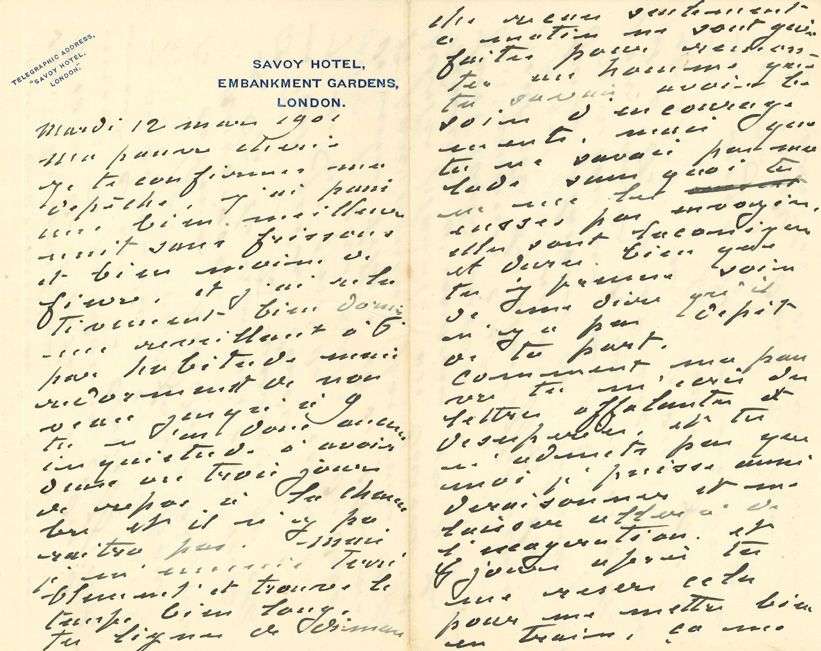 TELEGRAPHIC ADDRESS,
"SAVOY HOTEL,
LONDON."
SAVOY HOTEL,
EMBANKMENT GARDENS,
LONDON.
Mardi 12 mars 1901
Ma pauvre chérie
Je te confirme ma
dépêche, j'ai passé
une bien meilleure
nuit sans frissons
et bien moins de
fièvre, et j'ai rela
tivement bien dormi
me reveillant à 6
par habitude mais
redormant de nou
veau jusqu'à 9
tu n'as donc aucune
inquiétude à avoir
deux ou trois jours
de repos à la cham
bre et il n'y pa
raitra pas. mais
je m'ennuie terri
blement et trouve le
temps bien long.
tes lignes de
reçues seulement
ce matin ne sont guère
faites pour remon
ter un homme que
tu savais avoir be
soin d'encourage
ments, mais que
tu ne savais pas ma
lade sans quoi tu
ne me les
eusses pas envoyées.
elles sont laconiques
et dures bien que
tu y prennes soin
de me dire qu'il
n'y a pas dépit
de ta part.
comment ma pau
vre tu m'écris des
lettres affolantes et
desespérées, et tu
n'admets pas que
moi je puisse aussi
deraisonner et me
laisser aller à de
l'exagération. et
8 jours après tu
me resers cela
pour me mettre bien
en train, ça me